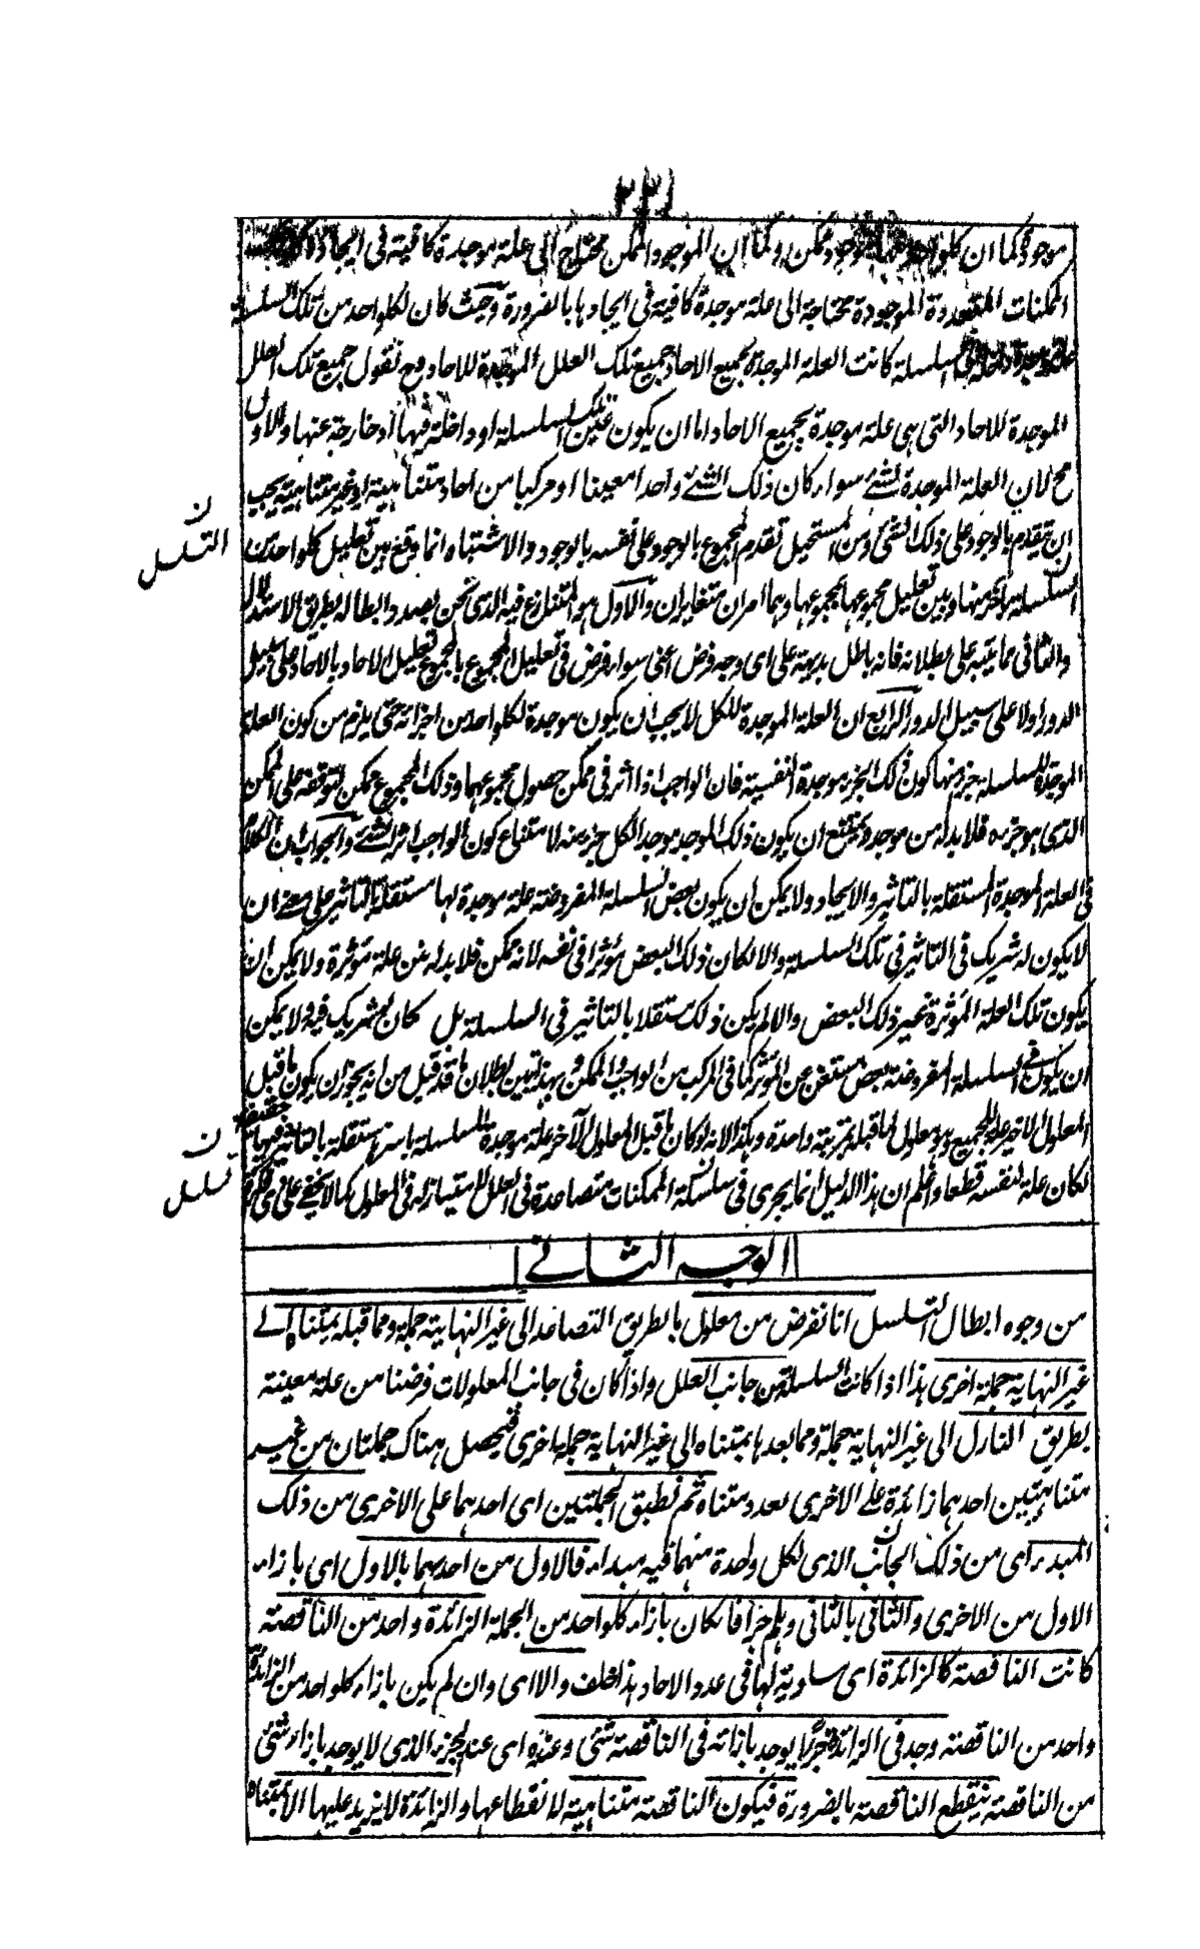 ٢٣١
موجود كما ان كلواحد منها موجود ممكن وكما ان الموجود الممكن محتاج الى علة موجدة كافية فى ايجاده كذلك
الممكنات المتعددة الموجودة محتاجة الى علة موجدة كافية فى ايجادها بالضرورة وحيث كان لكلواحد من تلك السلسلة
علة موجدة داخلة فى السلسلة كانت العلة الموجدة لجميع الاحاد جميع تلك العلل الموجدة للاحاد وح نقول جميع تلك العلل
الموجدة للاحاد التى هى علة موجدة لجميع الاحاد اما ان يكون عين تلك السلسلة او داخلة فيها او خارجة عنها والاول
مح لان العلة الموجدة للشئ سواء كان ذلك الشئ واحدا معينا او مركبا من احاد متناهية او غير متناهية يجب
ان يتقدم بالوجود على ذلك الشئ ومن المستحيل تقدم المجموع بالوجود على نفسه بالوجود والاشتباه انما وقع بين تعليل كلواحد من
السلسلة باخر منها وبين تعليل مجموعها بمجموعها وهما امران متغايران والاول هو المتنازع فيه الذى نحن بصدد ابطاله بطريق الاستدلال
والثانى مما ينبه على بطلانه فانه باطل بديهة على اى وجه فرض اعنى سواء فرض فى تعليل المجموع بالمجموع تعليل الاحاد بالاحاد على سبيل
الدور اولا على سبيل الدور الرابع ان العلة الموجدة للكل لا يجب ان يكون موجدة لكلواحد من اجزائه حتى يلزم من كون العلة
الموجدة للسلسلة جزء منها كون ذلك الجزء موجدة لنفسه فان الواجب اذا اثر فى ممكن حصول مجموعهما وذلك المجموع ممكن لتوقفه على الممكن
الذى هو جزءه فلا بد له من موجد ويمتنع ان يكون ذلك الموجد موجد الكل جزء منه لامتناع كون الواجب اثر الشئ والجواب ان الكلام
فى العلة الموجدة المستقلة بالتاثير والايجاد ولا يمكن ان يكون بعض السلسلة المفروضة علة موجدة لها مستقلة بالتاثير على معنى ان
لا يكون له شريك فى التاثير فى تلك السلسلة والا لكان ذلك البعض مؤثرا فى نفسه لانه ممكن فلا بد له من علة مؤثرة ولا يمكن ان
يكون تلك العلة المؤثرة غير ذلك البعض والا لم يكن ذلك مستقلا بالتاثير فى السلسلة بل كان له شريك فيه ولا يمكن
ان يكون فى السلسلة المفروضة بعض مستغن عن المؤثر كما فى المركب من الواجب والممكن وبهذا تبين بطلان ما قد قيل من انه يجوز ان يكون ما قبل
المعلول الاخير علة للجميع وهو معلول لما قبله بمرتبة واحدة وهكذا لانه لو كان ما قبل المعلول الاخر علة موجدة للسلسلة باسرها مستقلة بالتاثير فيها حقيقة
لكان علة لنفسه قطعا واعلم ان هذا الدليل انما يجرى فى سلسلة الممكنات متصاعدة فى العلل لا متنازلة فى المعلول كما لا يخفى على ذى
ن
التسلسل
ن
تسلسل
الوجه الثانى
من وجوه ابطال التسلسل انا نفرض من معلول ما بطريق التصاعد الى غير النهاية جملة ومما قبله بمتناه الى
غير النهاية جملة اخرى هذا اذا كانت السلسلة من جانب العلل واذا كان فى جانب المعلولات فرضنا من علة معينة
بطريق التنازل الى غير النهاية جملة ومما بعدها بمتناه الى غير النهاية جملة اخرى فيحصل هناك جملتان من غير
متناهيتين احدهما زائدة على الاخرى بعدد متناه ثم نطبق الجملتين اى احدهما على الاخرى من ذلك
المبدء اى من ذلك الجانب الذى لكل واحدة منهما فيه مبداء فالاول من احدهما بالاول اى بازاء
الاول من الاخرى والثانى بالثانى وهلم جرا فان كان بازاء كلواحد من الجملة الزائدة واحد من الناقصة
كانت الناقصة كالزائدة اى مساوية لها فى عدد الاحاد هذا خلف والا اى وان لم يكن بازاء كلواحد من الزائدة
واحد من الناقصة وجد فى الزائدة جزء لا يوجد بازائه فى الناقصة شئ وعنده اى عند الجزء الذى لا يوجد بازاءه شئ
من الناقصة ينقطع الناقصة بالضرورة فيكون الناقصة متناهية لانقطاعها والزائدة لا يزيد عليها الا بمتناه